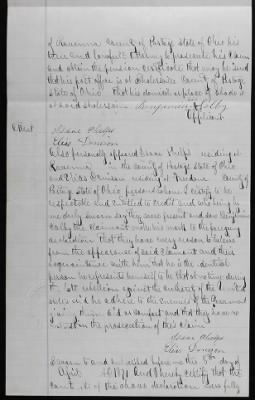 of Ravenna County of Portage State of Ohio his
true and lawful Attorney to prosecute his claim
and obtain the pension certificate that may be issued
that his post office is at                County of Portage
State of Ohio that his domicile or place of abode is
at said
Benjamin Colby
Applicant
Attest
Isaac Phelps
Elias
Also personally appeared Isaac Phelps residing at
Ravenna the county of Portage State of Ohio
and Elias            residing at            County of
Portage State of Ohio, persons whom I certify to be
respectable and entitled to credit and who being by
me duly sworn say they were present and saw Benjamin
Colby the claimant make his mark to the foregoing
declaration that they have every reason to believe
from the appearance of said claimant and their
acquaintance with him that he is the identical
person he represents himself to be that at no time during
the late rebellion against the authority of the United
States did he adhere to the enemies of the Government
giving them aid or comfort and that they have no
interest in the prosecution of this claim
Isaac Phelps
Elias
Sworn to and subscribed before me this       day of
April AD 1871 and I hereby certify that the
contents of the above declaration were fully